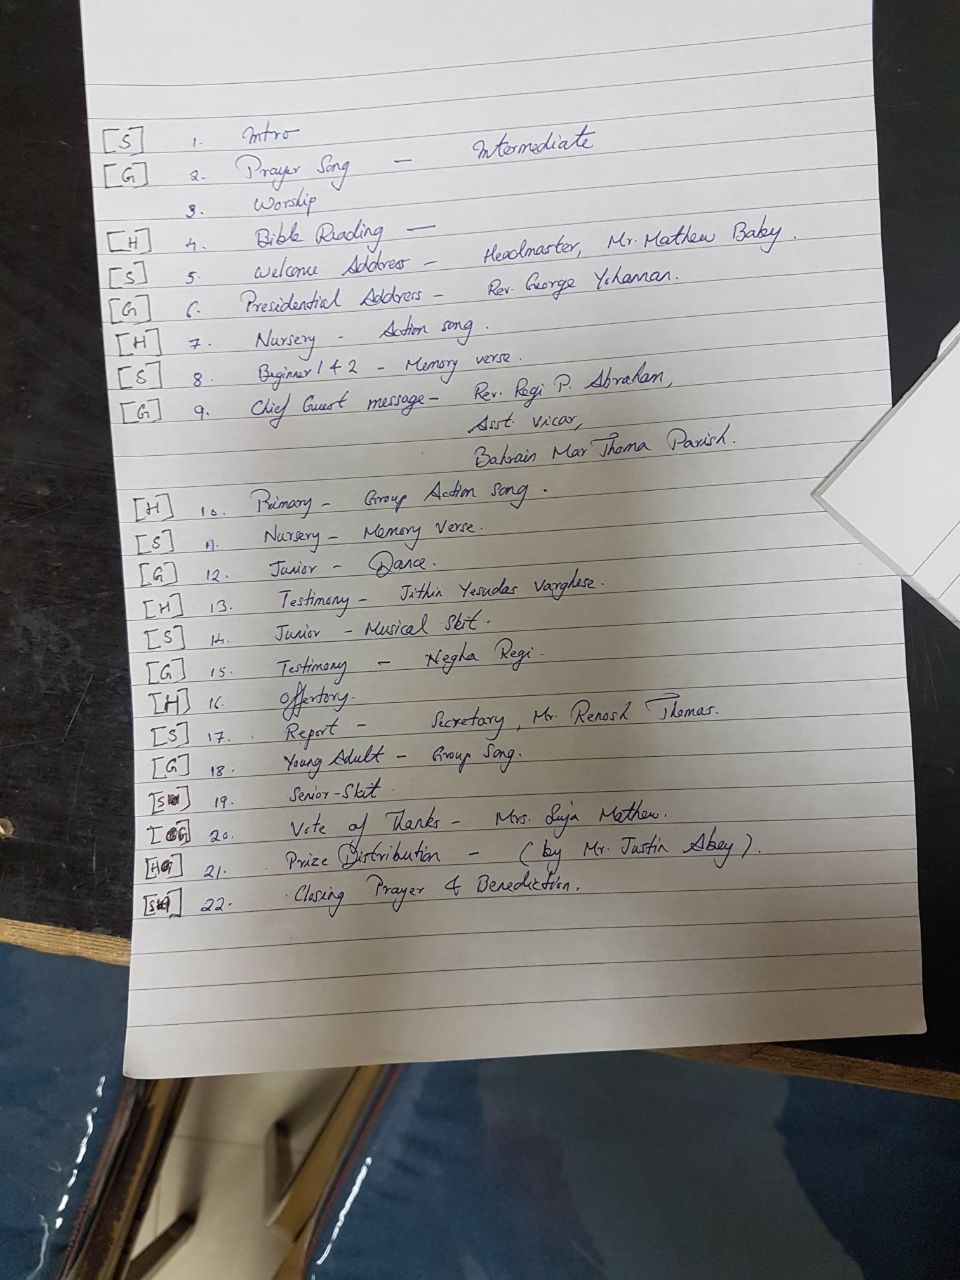 [S] 1. Intro
[G] 2. Prayer Song - Intermediate
3. Worship
[H] 4. Bible Reading -
[S] 5. Welcome Address - Headmaster, Mr. Mathew Baby.
[G] 6. Presidential Address - Rev. George Yohannan.
[H] 7. Nursery - Action song.
[S] 8. Beginner 1 & 2 - Memory verse.
[G] 9. Chief Guest message - Rev. Regi P. Abraham,
Asst. Vicar,
Bahrain Mar Thoma Parish.
[H] 10. Primary - Group Action song.
[S] 11. Nursery - Memory Verse.
[G] 12. Junior - Dance.
[H] 13. Testimony - Jithin Yesudas Varghese.
[S] 14. Junior - Musical Skit.
[G] 15. Testimony - Negha Regi.
[H] 16. Offertory.
[S] 17. Report - Secretary, Mr. Renosh Thomas.
[G] 18. Young Adult - Group Song.
[S] 19. Senior - Skit.
[G] 20. Vote of Thanks - Mrs. Suja Mathew.
[H] 21. Prize Distribution - (by Mr. Justin Abey).
[S] 22. Closing Prayer & Benediction.